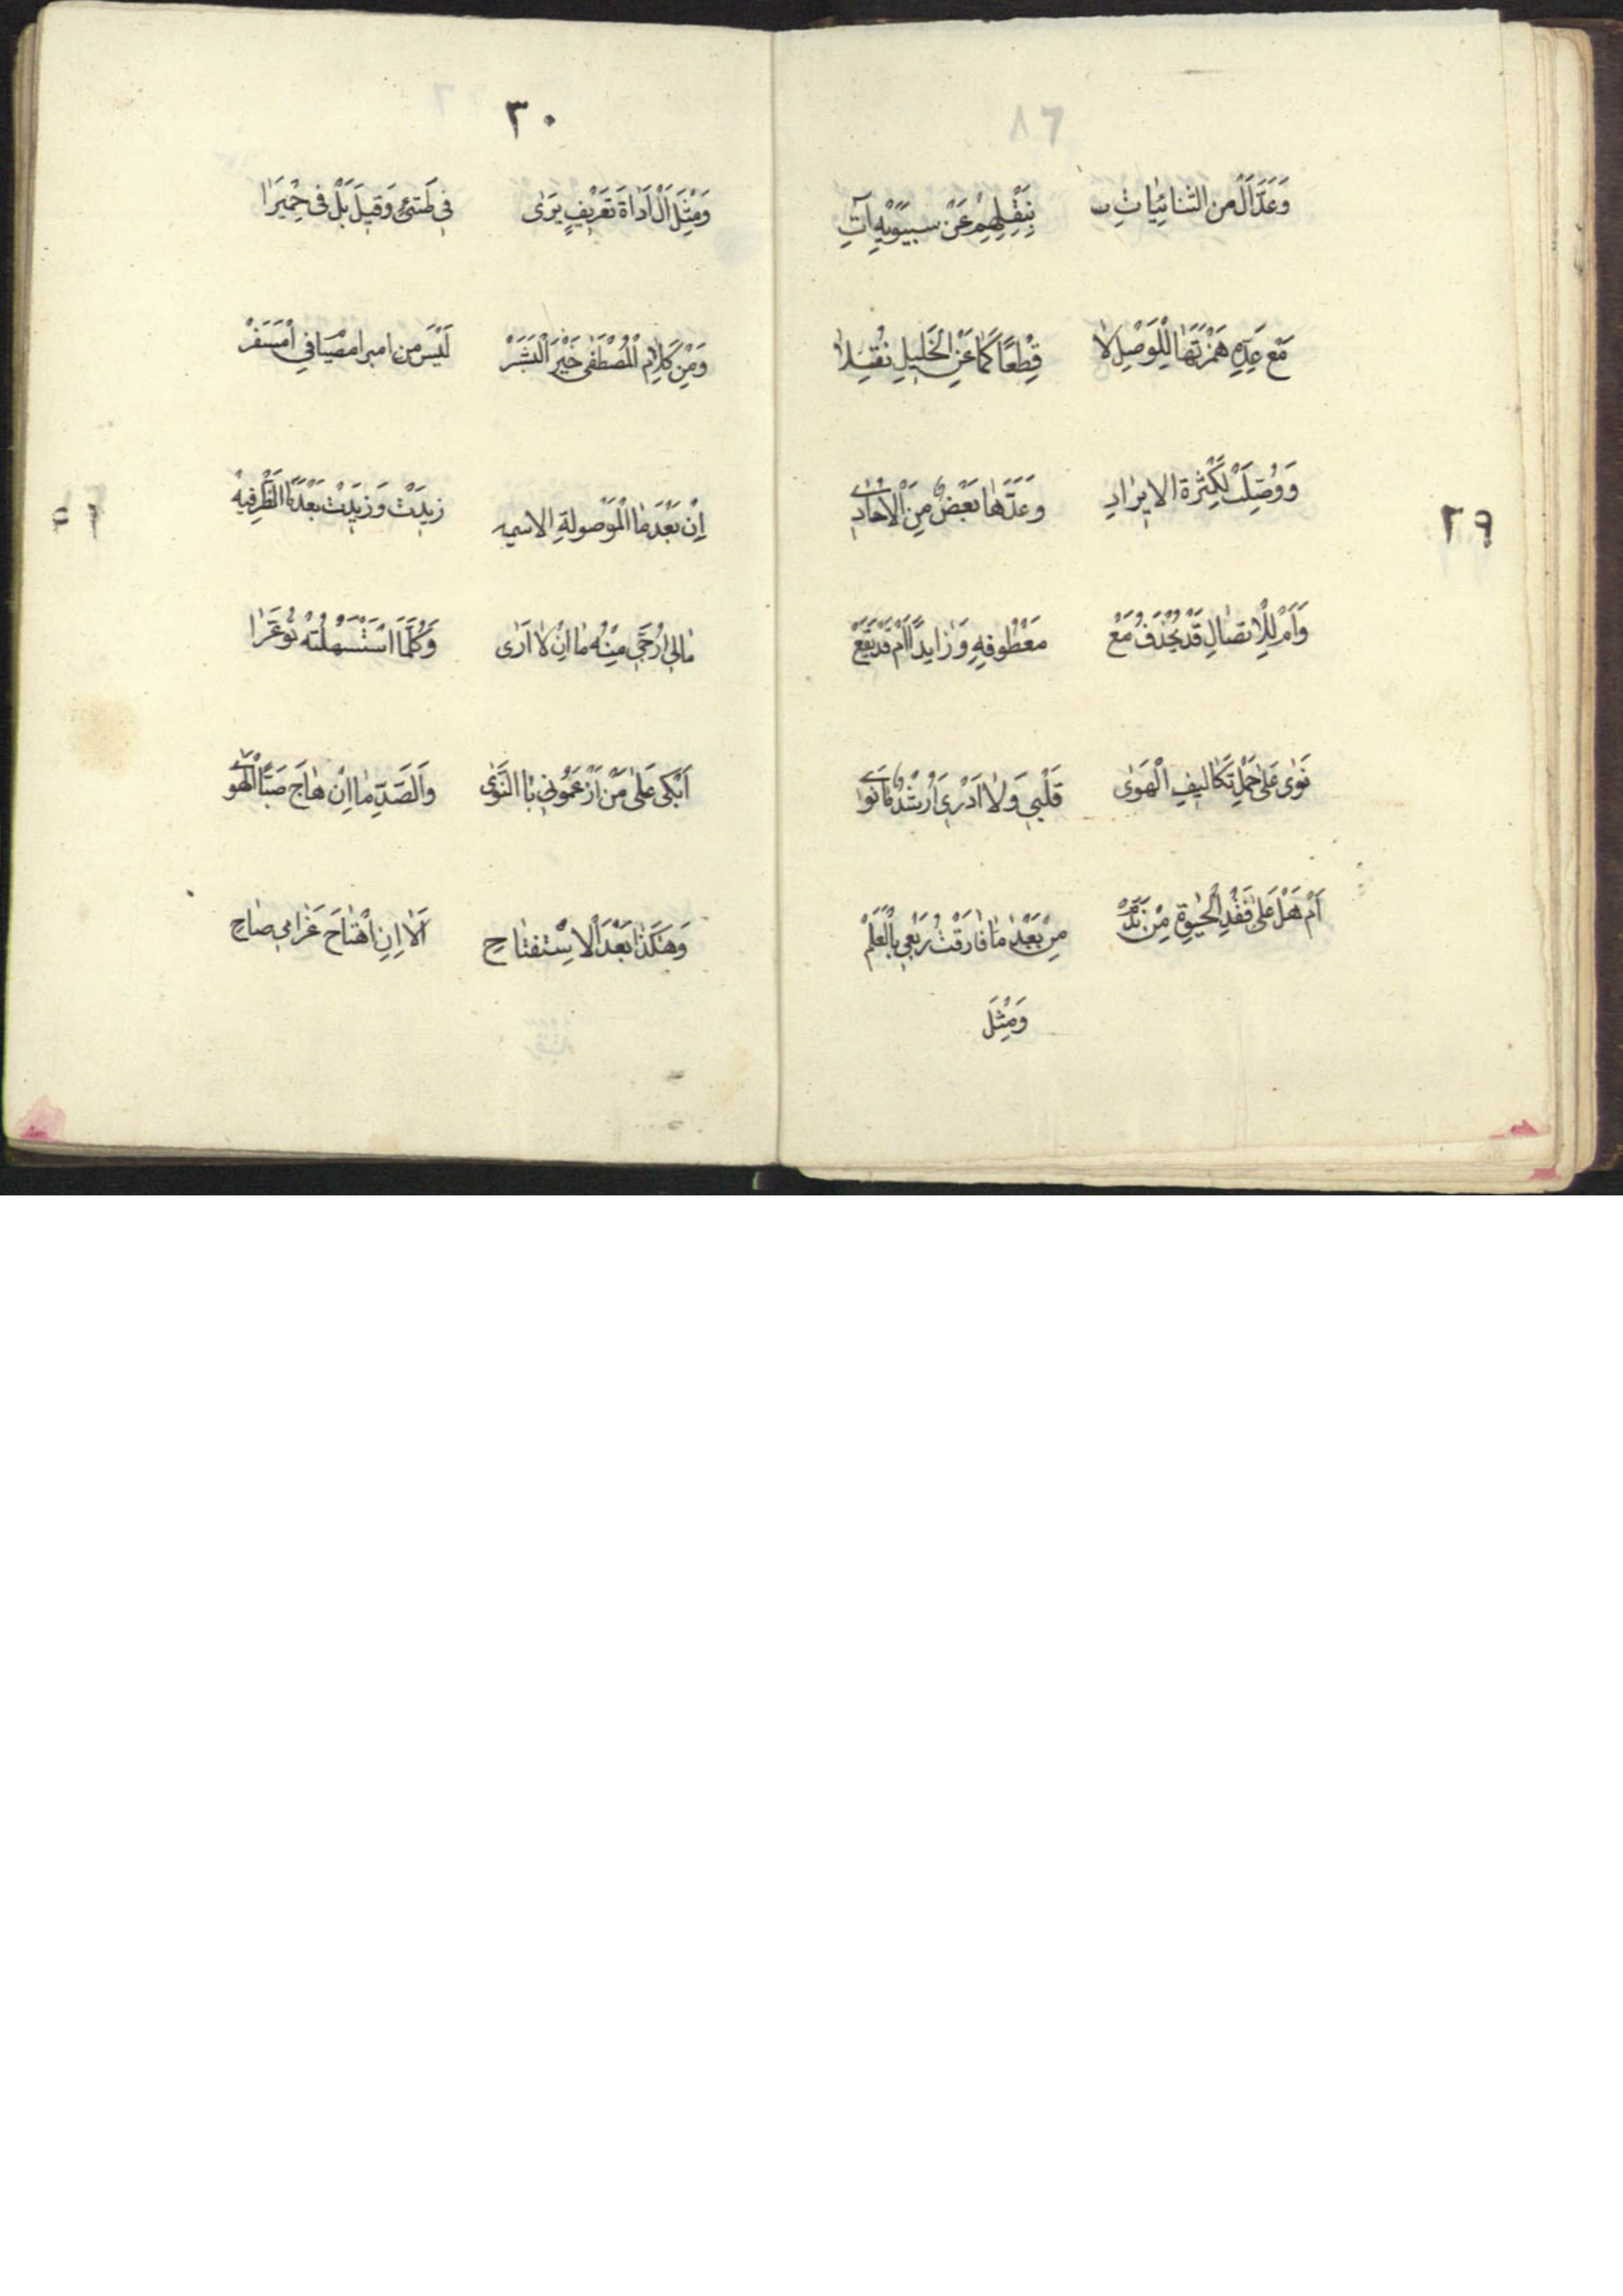 وَعَدَّ اَلْ مِنَ الثنائِيَّاتِ بـ نَقْلِهِمْ عَنْ سِيبَوَيْهِ آتِ
مَعَ عَدِّهِ هَمْزَتَهَا لِلْوَصْلِ لا قَطْعًا كَمَا عَنِ الْخَلِيلِ نُقِلا
وَوُصِلَتْ لِكَثْرَةِ الايرَادِ وعَدَّهَا بَعْضٌ مِنَ الْآحَادِ
٢٩
وَاَمْ لِلِاتصَالِ قَدْ يُحْذَفُ مَعْ مَعْطُوفِهِ وَزَايِدًا اَمْ قَدْ يَقَعْ
نَوٰى عَلٰى حَمْلِ تَكَالِيفِ الْهَوٰى قَلْبِي وَلَا اَدْرِي اَرُشْدٌ مَا نَوٰى
اَمْ هَلْ عَلٰى فَقْدِ الْحَيٰوةِ مِنْ نَدَمْ مِنْ بَعْدِ مَا فَارَقْتُ رَبْعِي بِالْعَلَمْ
وَمِثْلَ
٣٠
وَمِثْلَ اَلْ اَدَاةَ تَعْرِيفٍ يَرٰى فِي طَيِّئٍ وَقِيلَ بَلْ فِي حِمْيَرَا
وَمِنْ كَلَامِ الْمُصْطَفٰى خَيْرِ الْبَشَرْ لَيْسَ مِن امبر امصيَافي امْسَفَرْ
اِنْ بَعْدَ مَا الْمَوْصُولَةِ الاسميه زِيدَتْ وَزِيدَتْ بَعْدَ مَا الظَّرفِيهْ
مَالِي اُرَجِّي مِنْهُ مَا اِنْ لَا اَرٰى وَكُلَّمَا اسْتَسْهَلْتُهُ تَوَعَّرَا
اَبْكِي عَلٰى مَنْ اَزْعَمُونِي بِالنَّوٰى وَالصَّدِّ مَا اِنْ هَاجَ صَبًّا الْهَوٰى
وَهٰكَذَا بَعْدَ اَلَا اسْتِفْتَاحِ اَلَا اِنِ اهْتَاجَ غَرَامِي صَاحِ